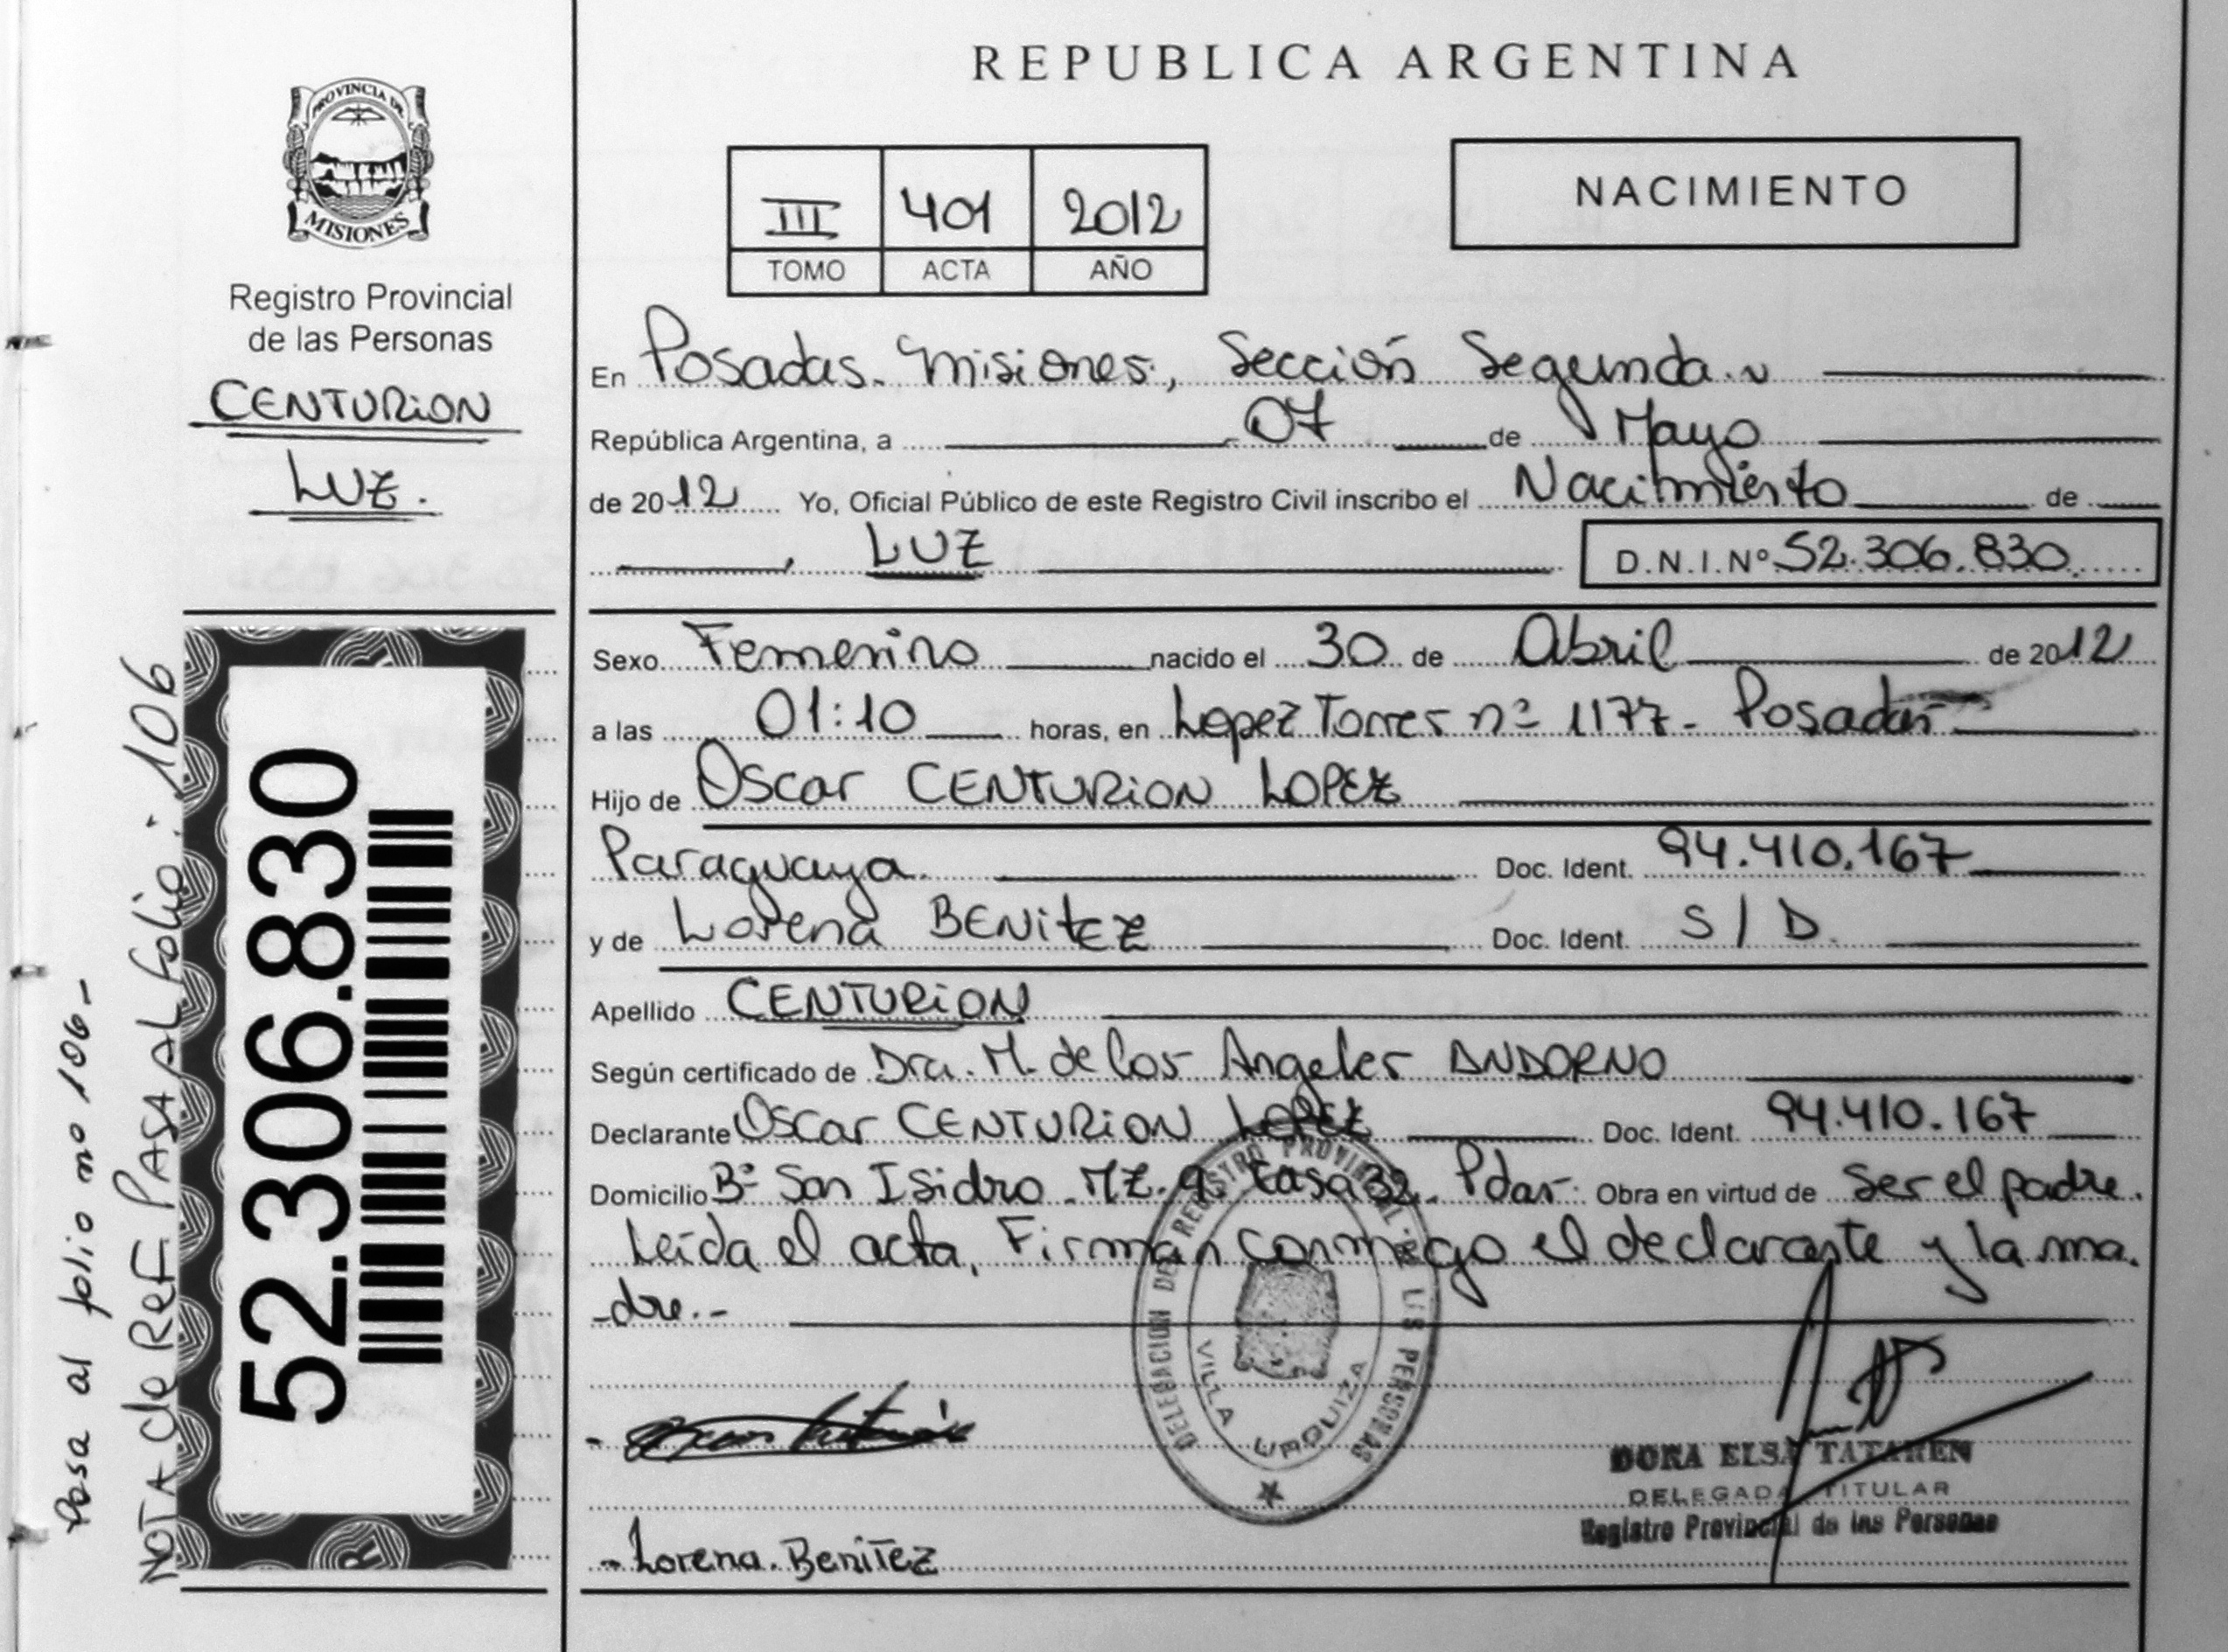 REPUBLICA ARGENTINA
PROVINCIA DE
MISIONES
Registro Provincial
de las Personas
CENTURION
LUZ.
III 401 2012
TOMO ACTA AÑO
NACIMIENTO
En Posadas. Misiones, Sección Segunda.
República Argentina, a 07 de Mayo
de 2012 Yo, Oficial Público de este Registro Civil inscribo el Nacimiento de
, LUZ D.N.I.Nº 52.306.830
Sexo Femenino nacido el 30 de Abril de 2012
a las 01:10 horas, en Lopez Torres nº 1177- Posadas
Hijo de Oscar CENTURION LOPEZ
Paraguaya. Doc. Ident. 94.410.167
y de Lorena BENITEZ Doc. Ident. S/D.
Apellido CENTURION
Según certificado de Dra. M. de los Angeles ANDORNO
Declarante Oscar CENTURION LOPEZ Doc. Ident. 94.410.167
Domicilio Bº San Isidro. MZ. 9. Casa 32. Pdas. Obra en virtud de ser el padre.
Leída el acta, Firman conmigo el declarante y la ma-
-dre.-
DELEGACION DEL REGISTRO PROVINCIAL DE LAS PERSONAS
VILLA URQUIZA
DORA ELSA TATAREN
DELEGADA TITULAR
Registro Provincial de las Personas
- Lorena. Benitez
52.306.830
NOTA de REF. PASA AL folio: 106
Pasa al folio no 106-